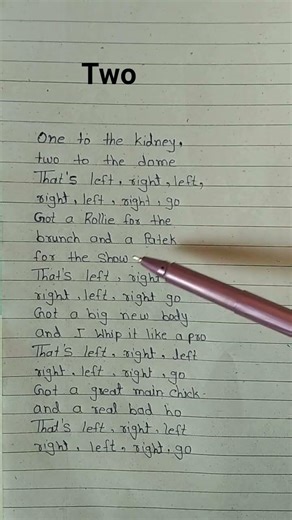 Two
One to the kidney,
two to the dome
That's left, right, left,
right, left, right, go
Got a Rollie for the
brunch and a Patek
for the show
That's left, right
right, left, right go
Got a big new body
and I whip it like a pro
That's left, right, left
right, left, right, go
Got a great main chick
and a real bad ho
That's left, right, left
right, left, right, go